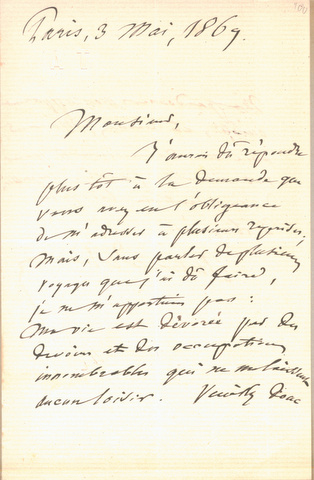 Paris, 3 Mai, 1869.
Monsieur,
J'aurais dû répondre
plus tôt à la demande que
vous avez eu l'obligeance
de m'adresser à plusieurs reprises;
Mais, sans parler de plusieurs
voyages que j'ai dû faire,
je ne m'appartiens pas:
Ma vie est dévorée par des
devoirs et des occupations
innombrables qui ne me laissent
aucun loisir. Veuillez donc